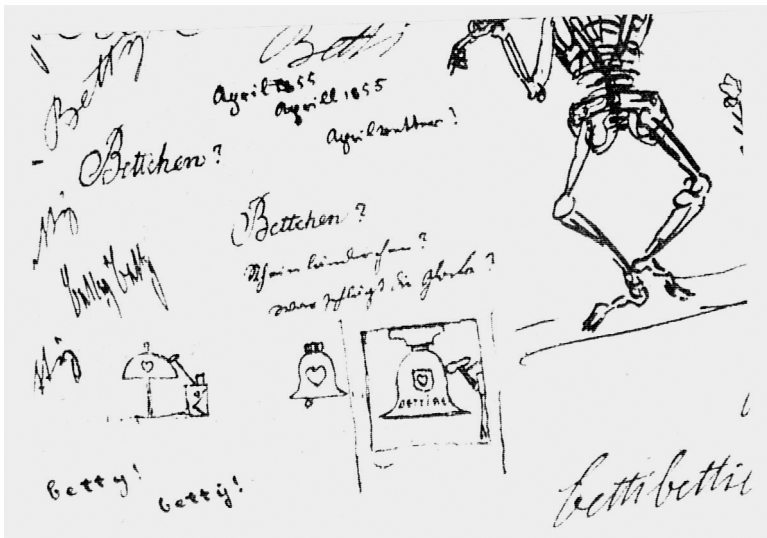 Betty
Betti
April 1855
Aprill 1855
Aprilwetter?
Bettchen?
Bettchen?
Mein kindchen?
was schlägt die Glocke?
betty betty
BETTINE
betty!
betty!
bettibetti